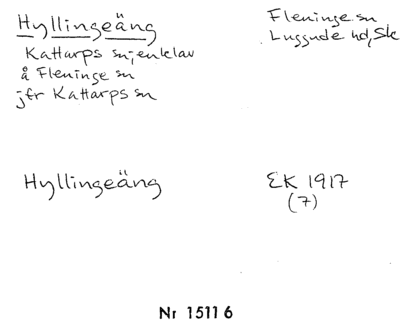 Hyllingeäng
Kattarps sn;enklav
å Fleninge sn
jfr Kattarps sn
Fleninge sn
Luggude hd, Sk
Hyllingeäng
EK 1917
(7)
Nr 15116